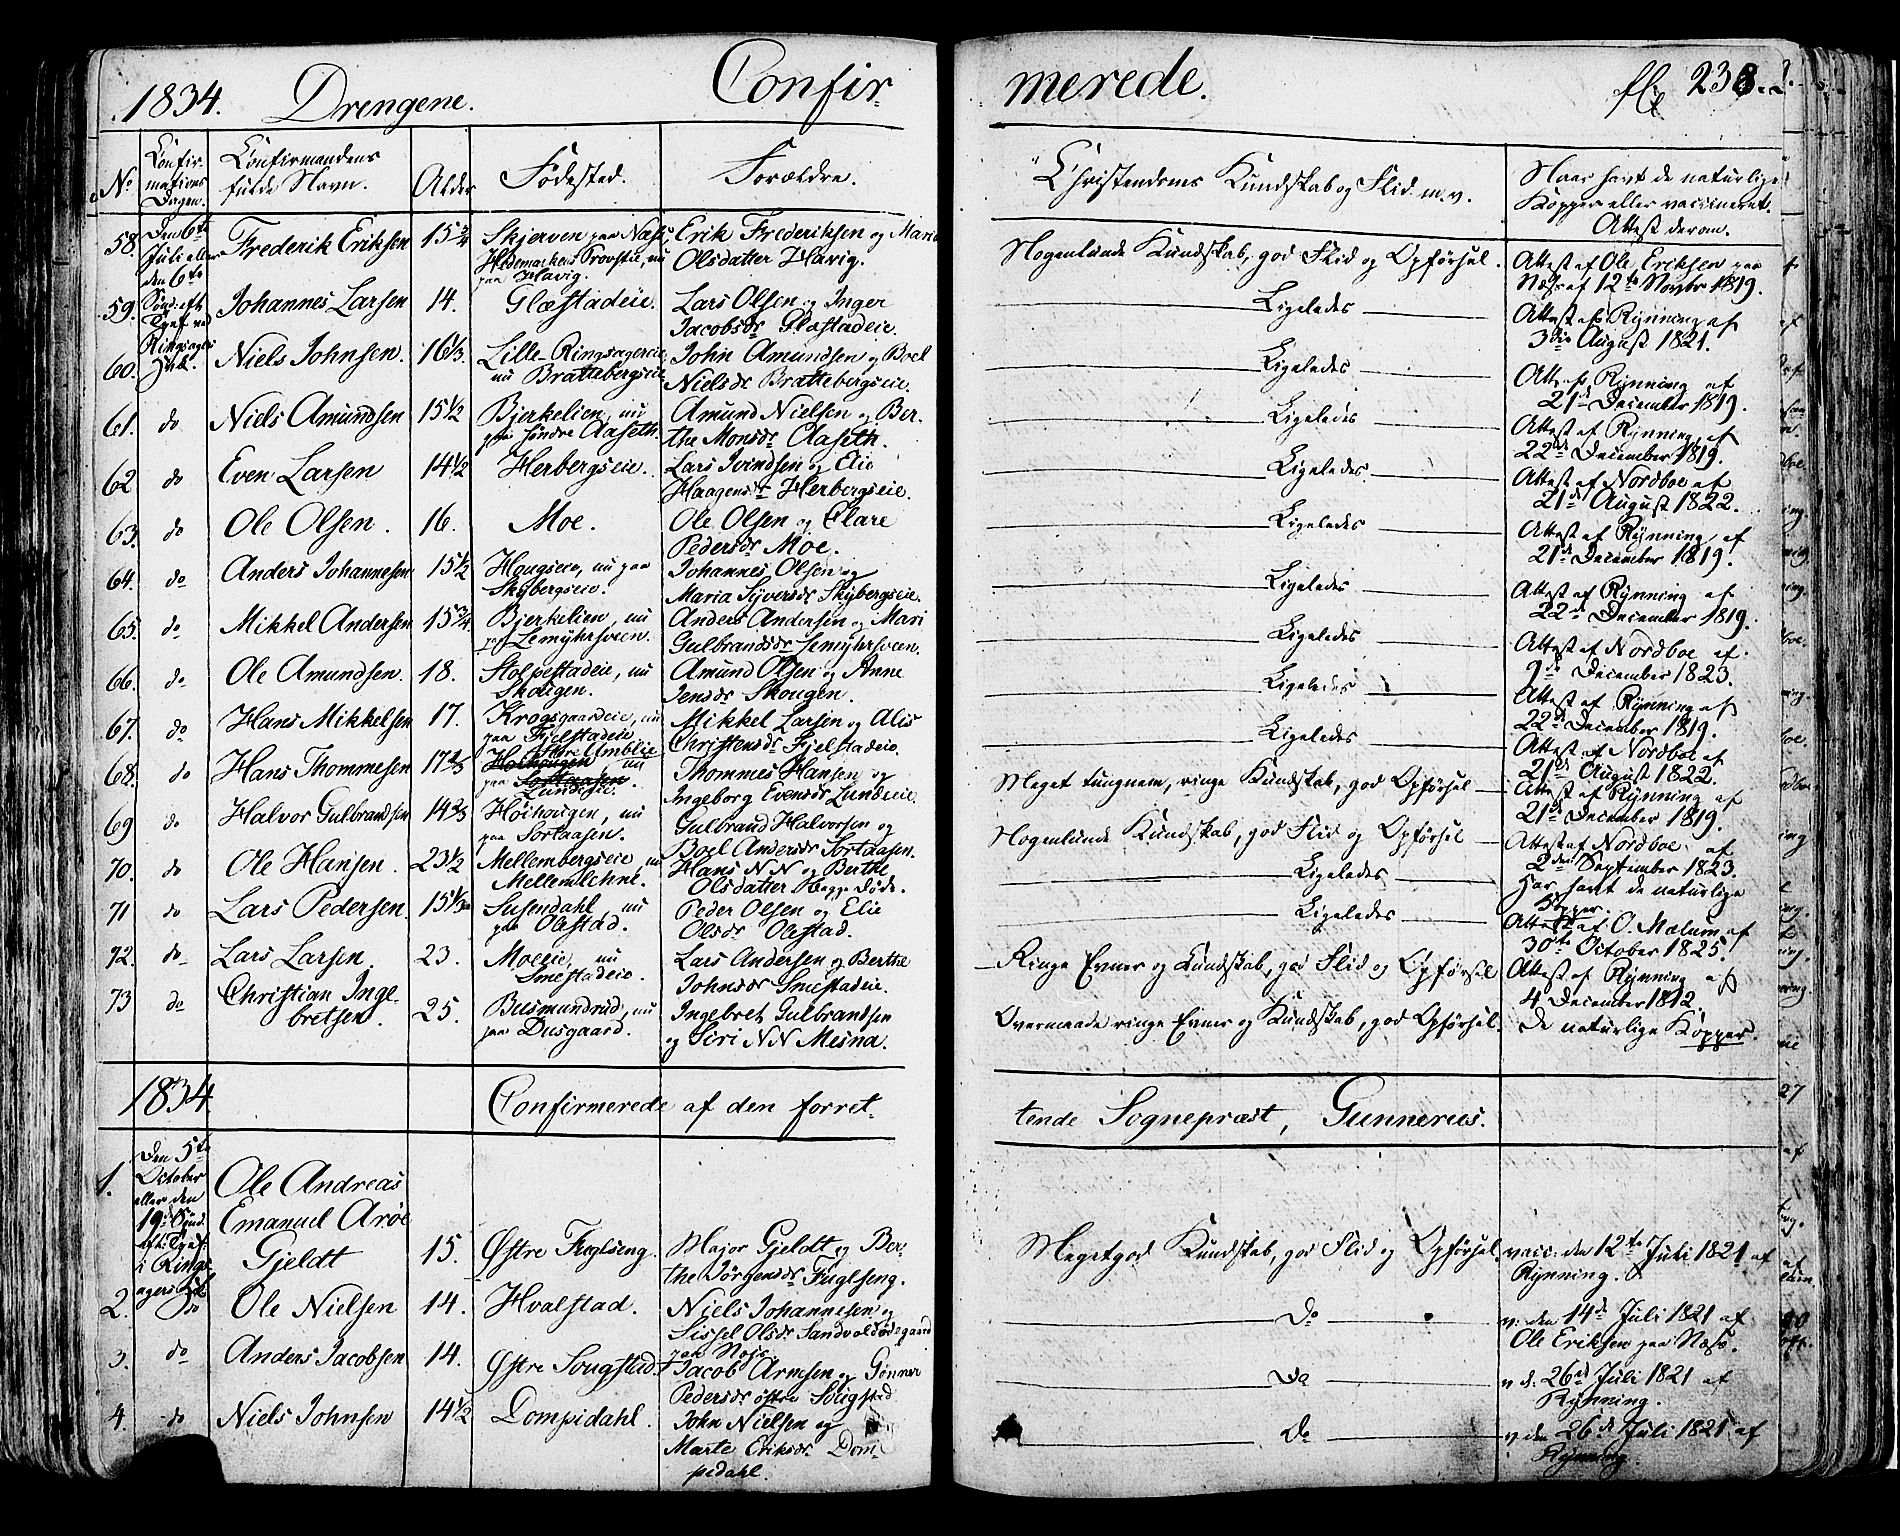 1834. Drengene. Confirmerede. fol. 238.
No Confirmations Dagen. Confirmandens fulde Navn. Alder Fødested. Forældre. Christendoms Kundskab og Flid m. v. Naar havt de naturlige Kopper eller vaccineret. Attest derom.
58. Den 6te Juli eller den 6te Sønd: eft: Frederik Eriksen 15 3/4 Skjerven paa Næs, Hedemarkens Provstie, nu paa Havig. Erik Frederiksen og Maria Olsdatter Havig. Nogenlunde Kundskab, god Flid og Opførsel. Attest af Ole Eriksen paa Næs af 12te Novbr 1819.
59. Johannes Larsen 14. Glæstadeie. Lars Olsen og Inger Jacobsdr Glæstadeie. Ligeledes Attest af Rynning af 3die August 1821.
60. Niels Johnsen. 16 1/3. Lille-Ringsagereie, nu Brattebergseie John Amundsen og Boel Nielsdr Brattebergseie. Ligeledes Att: af Rynning af 21d December 1819.
61. do Niels Amundsen 15 1/2 Bjerkelien, nu paa søndre Aaseth. Amund Nielsen og Berthe Monsdr Aaseth. Ligeledes Attest af Rynning af 22d December 1819.
62 do Even Larsen 14 1/2 Herbergseie. Lars Ivindsen og Elie Haagensdr Herbergseie. Ligeledes Attest af Nordboe af 21d August 1822.
63. do Ole Olsen. 16. Moe. Ole Olsen og Clare Pedersdr Moe. Ligeledes Attest af Rynning af 21d December 1819.
64. do Anders Johannesen 15 1/2 Hougseie, nu paa Skybergseie. Johannes Olsen og Maria Syversdr Skybergseie. Ligeledes Attest af Rynning af 22d December 1819.
65. do Mikkel Andersen 15 3/4. Bjerkelien, nu paa Lemyhrsveen. Anders Andersen og Mari Gulbrandsdr Lemyhrsveen. Ligeledes Attest af Nordboe af 9de December 1823.
66. do Ole Amundsen. 18. Stolpestadeie, nu Skougen. Amund Olsen og Anne Jensdr Skougen. Ligeledes Attest af Rynning af 22d December 1819.
67. do Hans Mikkelsen 17. Krogsgaardeie, nu paa Fjelstadeie Mikkel Larsen og Alis Christensdr Fjelstadeie. Ligeledes Attest af Nordboe af 21d August 1822.
68. do Hans Thommesen 17 2/3 Østre Amblie nu paa Lundseie. Thommes Hansen og Ingeborg Evensdr Lundseie. Meget tungnem, ringe Kundskab, god Opførsel Attest af Rynning af 21d December 1819.
69 do Halvor Gulbrandsen 14 2/3 Høihougen, nu paa Sortaasen. Gulbrand Halvorsen og Boel Andersdr Sortaasen. Nogenlunde Kundskab, god Flid og Opførsel Attest af Nordboe af 2den September 1823.
70. do Ole Hansen. 23 1/2 Mellembergseie, nu Mellemlehne. Hans N N og Berthe Olsdatter Døde. Ligeledes Har havt de naturlige Kopper.
71 do Lars Pedersen. 15 1/3 Susendahl, nu paa Olestad. Peder Olsen og Elie Olsdr Olestad. Ligeledes Attest af O. Mælum af 30te October 1825.
72. do Lars Larsen. 23. Moeeie, nu Smestadeie. Lars Andersen og Berthe Johnsdr Smestadeie. Ringe Evner og Kundskab, god Flid og Opførsel Attest af Rynning af 4 December 1812.
73 do Christian Ingebretsen. 25. Busmundrud, nu paa Dusgaard. Ingebret Gulbrandsen og Siri N N Mesna. Overmaade ringe Evner og Kundskab, god Opførsel. De naturlige Kopper.
1834. Confirmerede af den forrettende Sognepræst, Gunnerus.
1. Den 5te October eller den 19de Sønd: Ole Andreas Emanuel Arøe Gjeldt 15. Østre Fuglseng. Major Gjeldt og Berthe Jørgensdr Fuglseng. Megetgod Kundskab, god Flid og Opførsel vacc: den 12te Juli 1821 af Rynning.
2. do Ole Nielsen 14. Hvalstad. Niels Johannesen og Sissel Olsdr Sandvold paa Næs. Do v: den 14d Juli 1821 af Ole Eriksen paa Næss.
3. do Anders Jacobsen 14. Østre Sougstad. Jacob Arnesen og Gønner Pedersdr østre Do v d. 26d Juli 1821 af Rynning.
4. do Niels Johnsen 14 1/2 Dompidahl. John Nielsen og Marte Eriksdr Dompidahl. Do v den 26d Juli 1821 af Rynning.